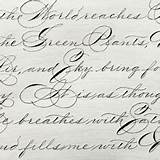 the World reaches
the Green Plants,
Air, and Sky bring f
It is as though
breathes with
and fills me with